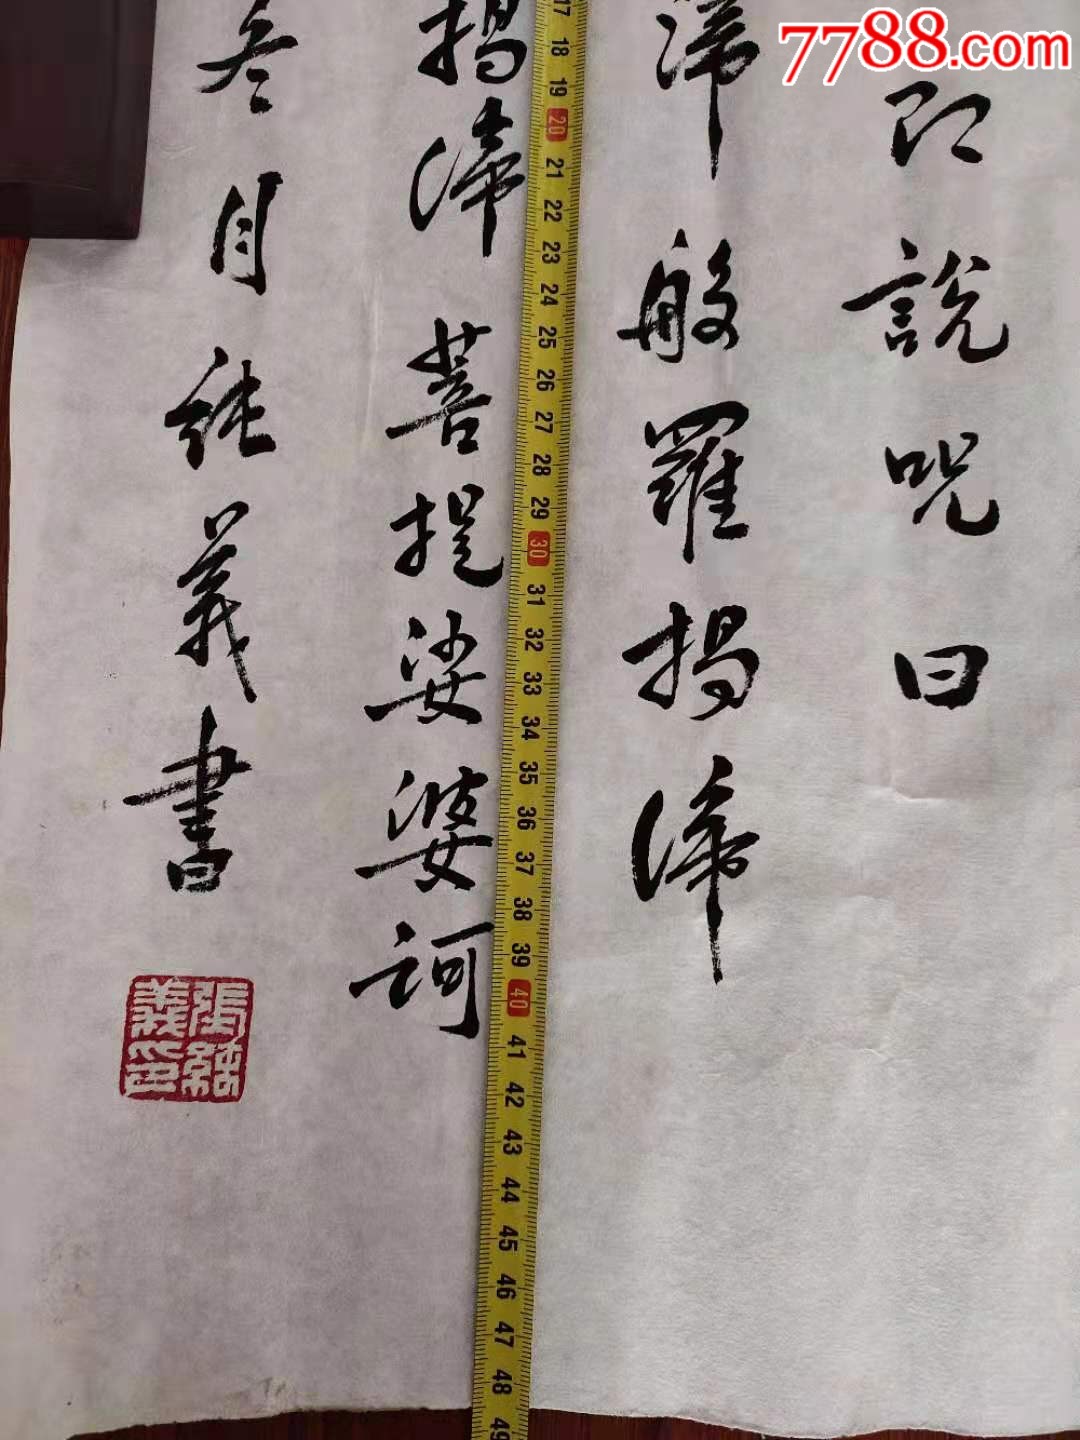 7788.com
即說呪曰
諦般羅揭諦
揭諦菩提娑婆訶
冬月義書
17
18
19
20
21
22
23
24
25
26
27
28
29
30
31
32
33
34
35
36
37
38
39
40
41
42
43
44
45
46
47
48
49